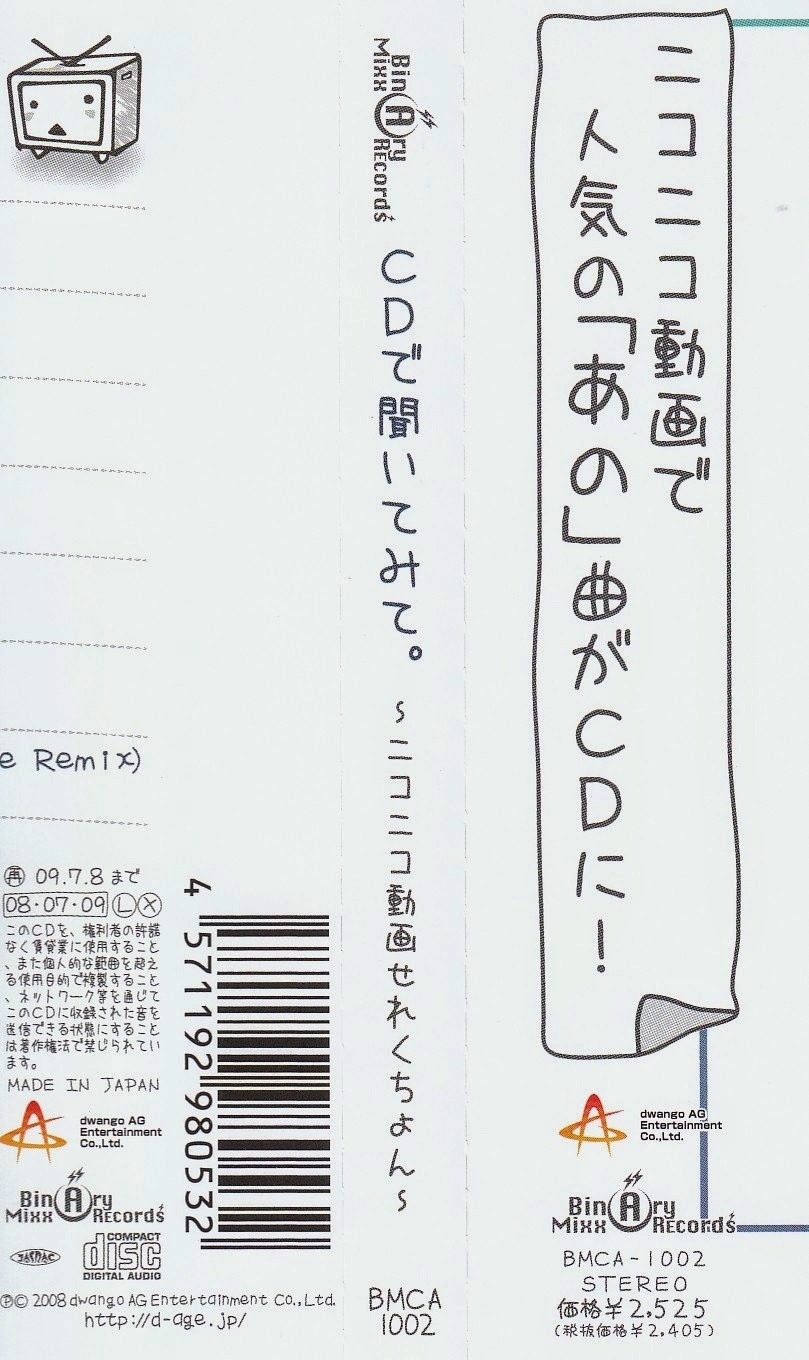 ニコニコ動画で
人気の「あの」曲がCDに!
dwango AG
Entertainment
Co.,Ltd.
BinAry
Mixx REcords
BMCA-1002
STEREO
価格¥2,525
(税抜価格¥2,405)
BinAry
Mixx REcords
CDで聞いてみて。 ~ニコニコ動画せれくちょん~
BMCA
1002
e Remix)
再 09.7.8 まで
08・07・09 L X
このCDを、権利者の許諾
なく賃貸業に使用すること
、また個人的な範囲を超え
る使用目的で複製すること
、ネットワーク等を通じて
このCDに収録された音を
送信できる状態にすること
は著作権法で禁じられてい
ます。
MADE IN JAPAN
dwango AG
Entertainment
Co.,Ltd.
BinAry
Mixx REcords
JASRAC
COMPACT
disc
DIGITAL AUDIO
4 571192 980532
℗© 2008 dwango AG Entertainment Co., Ltd.
http://d-age.jp/